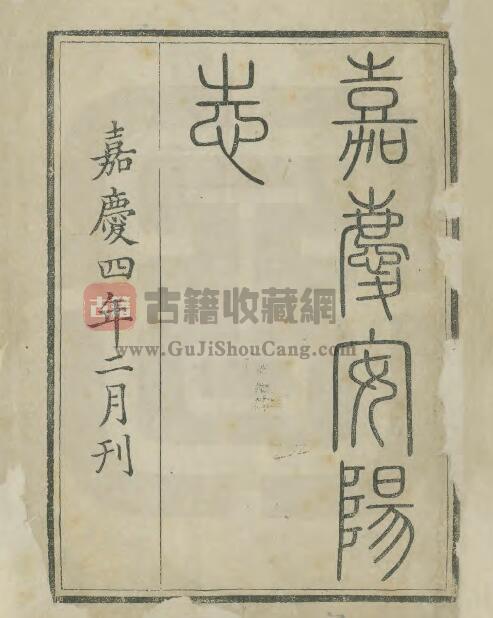 嘉慶安陽
志
嘉慶四年二月刊
古籍
古籍收藏網
www.GuJiShouCang.com